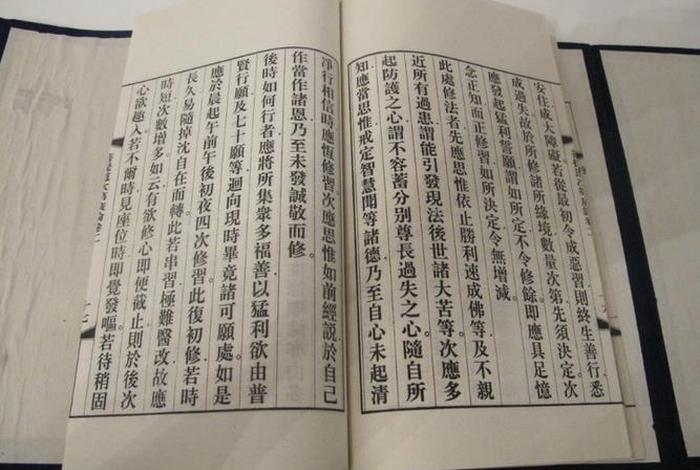 安住成大障礙若從最初令成惡習則終生善行悉
成過失故於所修諸所緣境數量次第先須決定次
應發起猛利誓願謂如所定不令修餘即應具足憶
念正知而正修習如所決定令無增減。
此處修法者先應思惟依止勝利速成佛等及不親
近所有過患謂能引發現法後世諸大苦等。次應多
起防護之心謂不容蓄分別尊長過失之心隨自所
知應當思惟戒定智慧聞等諸德乃至自心未起清
淨行相信時應恆修習。次應思惟如前經說於自己
作當作諸恩乃至未發誠敬而修。
後時如何行者應將所集衆多福善以猛利欲由普
賢行願及七十願等迴向現時畢竟諸可願處。如是
應於晨起午前午後初夜四次修習。此復初修若時
長久易隨掉沈自在而轉。此若串習極難醫改故應
時短次數增多。如云有欲修心即便截止則於後次
心欲趣入。若不爾時見座位時即覺發嘔。若待稍固
十七